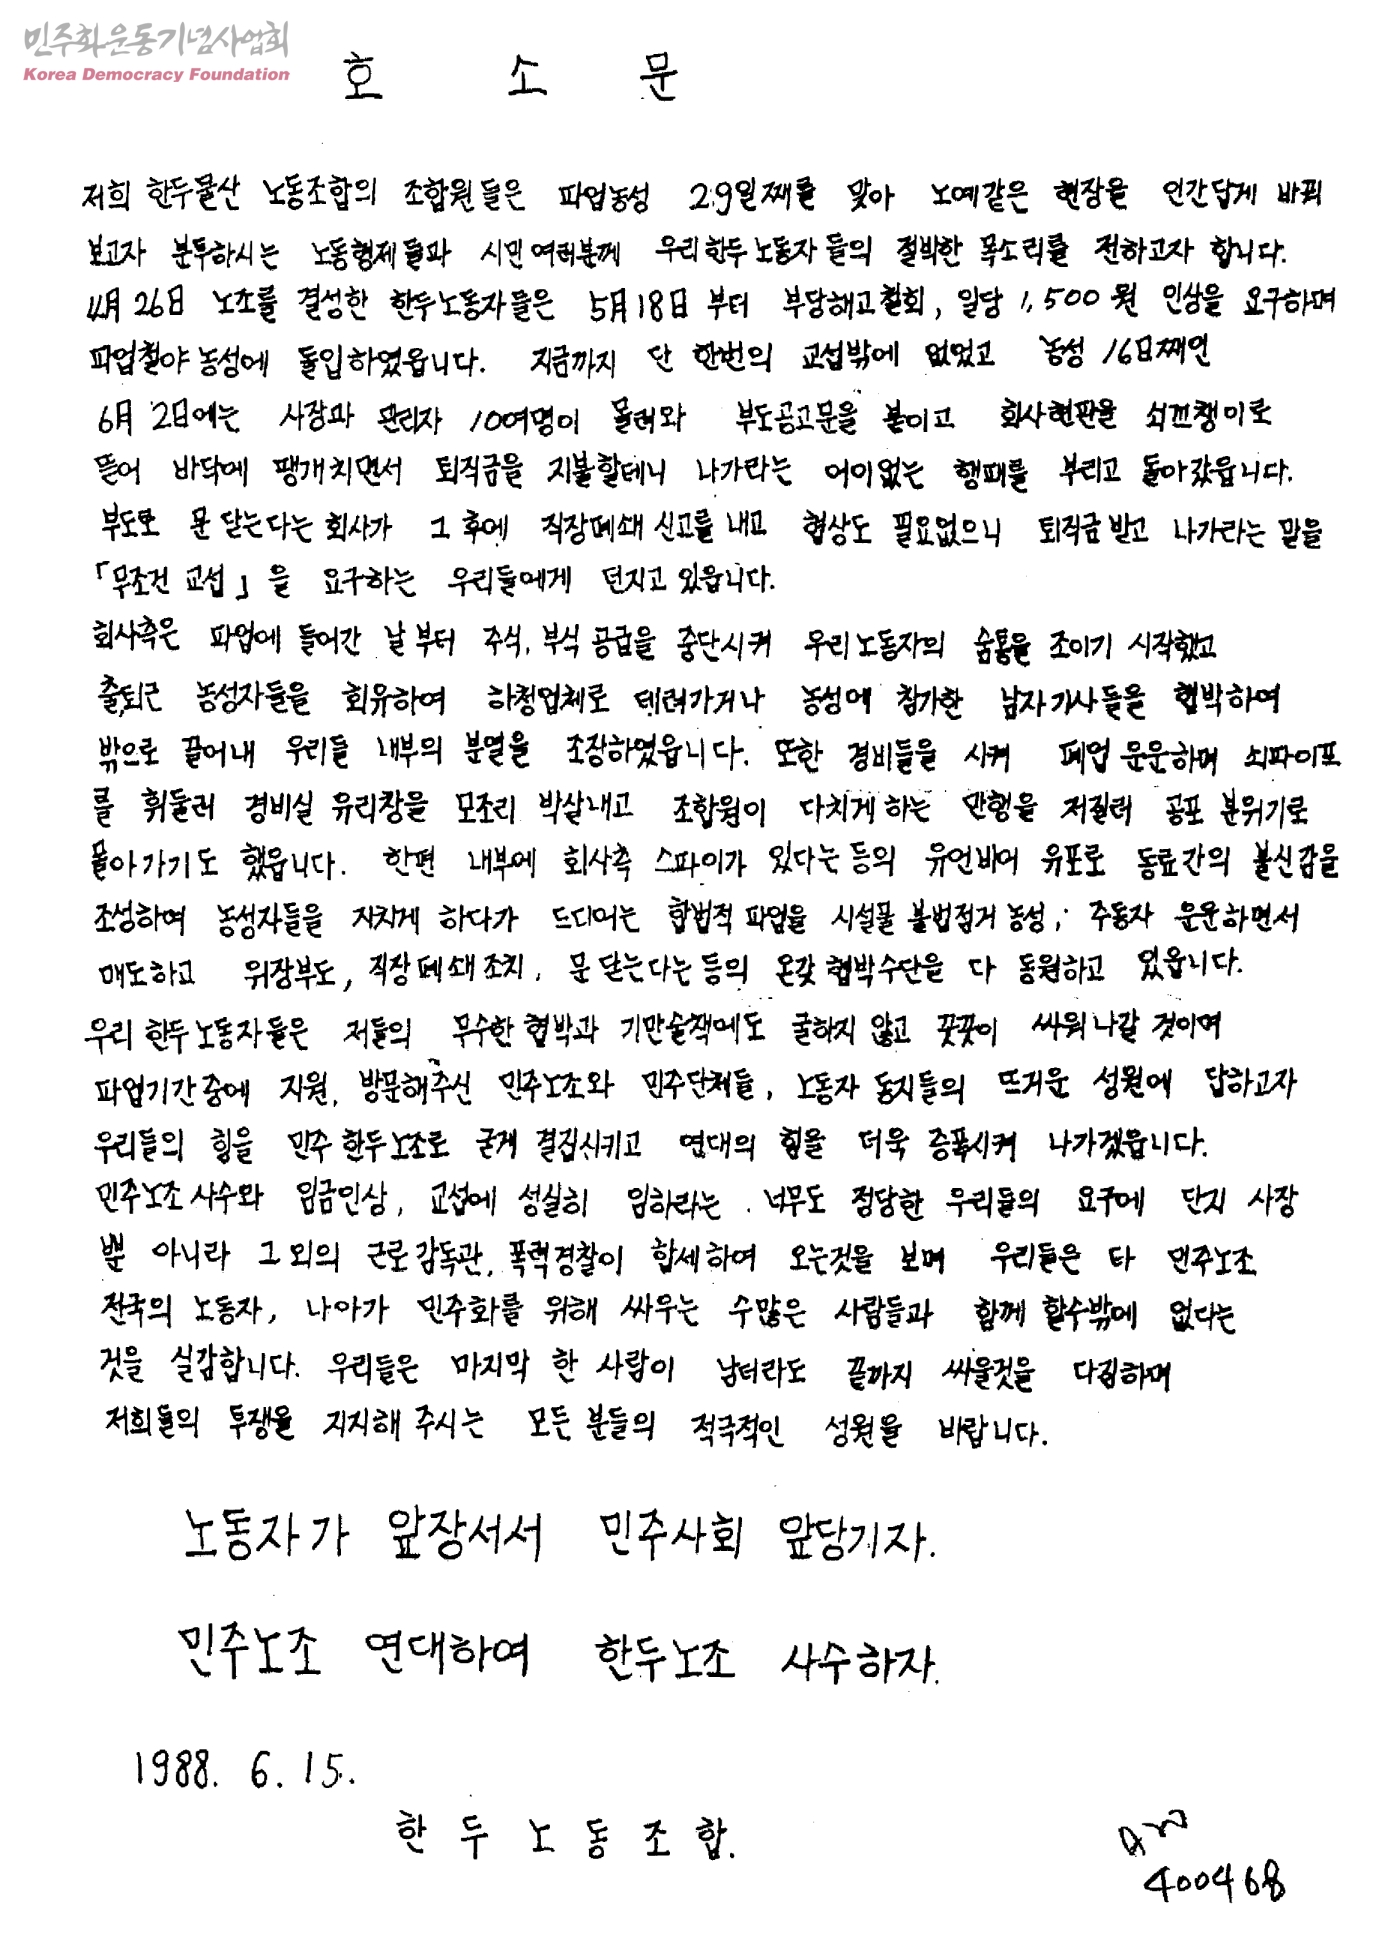 민주화운동기념사업회
Korea Democracy Foundation
호 소 문
저희 한두물산 노동조합의 조합원들은 파업농성 29일째를 맞아 노예같은 현장을 인간답게 바꿔
보고자 분투하시는 노동형제들과 시민여러분께 우리한두노동자들의 절박한 목소리를 전하고자 합니다.
4月 26日 노조를 결성한 한두노동자들은 5月 18日 부터 부당해고철회, 일당 1,500원 인상을 요구하며
파업철야농성에 돌입하였읍니다. 지금까지 단 한번의 교섭밖에 없었고 농성 16日째인
6月 2日에는 사장과 관리자 10여명이 몰려와 부도공고문을 붙이고 회사현판을 쇠꼬챙이로
뜯어 바닥에 팽개치면서 퇴직금을 지불할테니 나가라는 어이없는 행패를 부리고 돌아갔읍니다.
부도로 문 닫는다는 회사가 그 후에 직장폐쇄 신고를 내고 협상도 필요없으니 퇴직금받고 나가라는 말을
「무조건 교섭」을 요구하는 우리들에게 던지고 있읍니다.
회사측은 파업에 들어간 날부터 주식, 부식 공급을 중단시켜 우리노동자의 숨통을 조이기 시작했고
출,퇴근 농성자들을 회유하여 하청업체로 데려가거나 농성에 참가한 남자기사들을 협박하여
밖으로 끌어내 우리들 내부의 분열을 조장하였읍니다. 또한 경비들을 시켜 폐업 운운하며 쇠파이프
를 휘둘러 경비실 유리창을 모조리 박살내고 조합원이 다치게하는 만행을 저질러 공포 분위기로
몰아가기도 했읍니다. 한편 내부에 회사측 스파이가 있다는등의 유언비어 유포로 동료간의 불신감을
조성하여 농성자들을 지치게 하다가 드디어는 합법적 파업을 시설물 불법점거 농성, 주동자 운운하면서
매도하고 위장부도, 직장폐쇄조치, 문 닫는다는등의 온갖 협박수단을 다 동원하고 있읍니다.
우리 한두노동자들은 저들의 무수한 협박과 기만술책에도 굴하지 않고 꿋꿋이 싸워나갈 것이며
파업기간중에 지원, 방문해주신 민주노조와 민주단체들, 노동자 동지들의 뜨거운 성원에 답하고자
우리들의 힘을 민주한두노조로 굳게 결집시키고 연대의 힘을 더욱 증폭시켜 나가겠읍니다.
민주노조사수와 임금인상, 교섭에 성실히 임하라는 너무도 정당한 우리들의 요구에 단지 사장
뿐 아니라 그 외의 근로감독관, 폭력경찰이 합세하여 오는것을 보며 우리들은 타 민주노조
전국의 노동자, 나아가 민주화를 위해 싸우는 수많은 사람들과 함께 할수밖에 없다는
것을 실감합니다. 우리들은 마지막 한 사람이 남더라도 끝까지 싸울것을 다짐하며
저희들의 투쟁을 지지해 주시는 모든 분들의 적극적인 성원을 바랍니다.
노동자가 앞장서서 민주사회 앞당기자.
민주노조 연대하여 한두노조 사수하자.
1988. 6. 15.
한 두 노 동 조 합.
400468